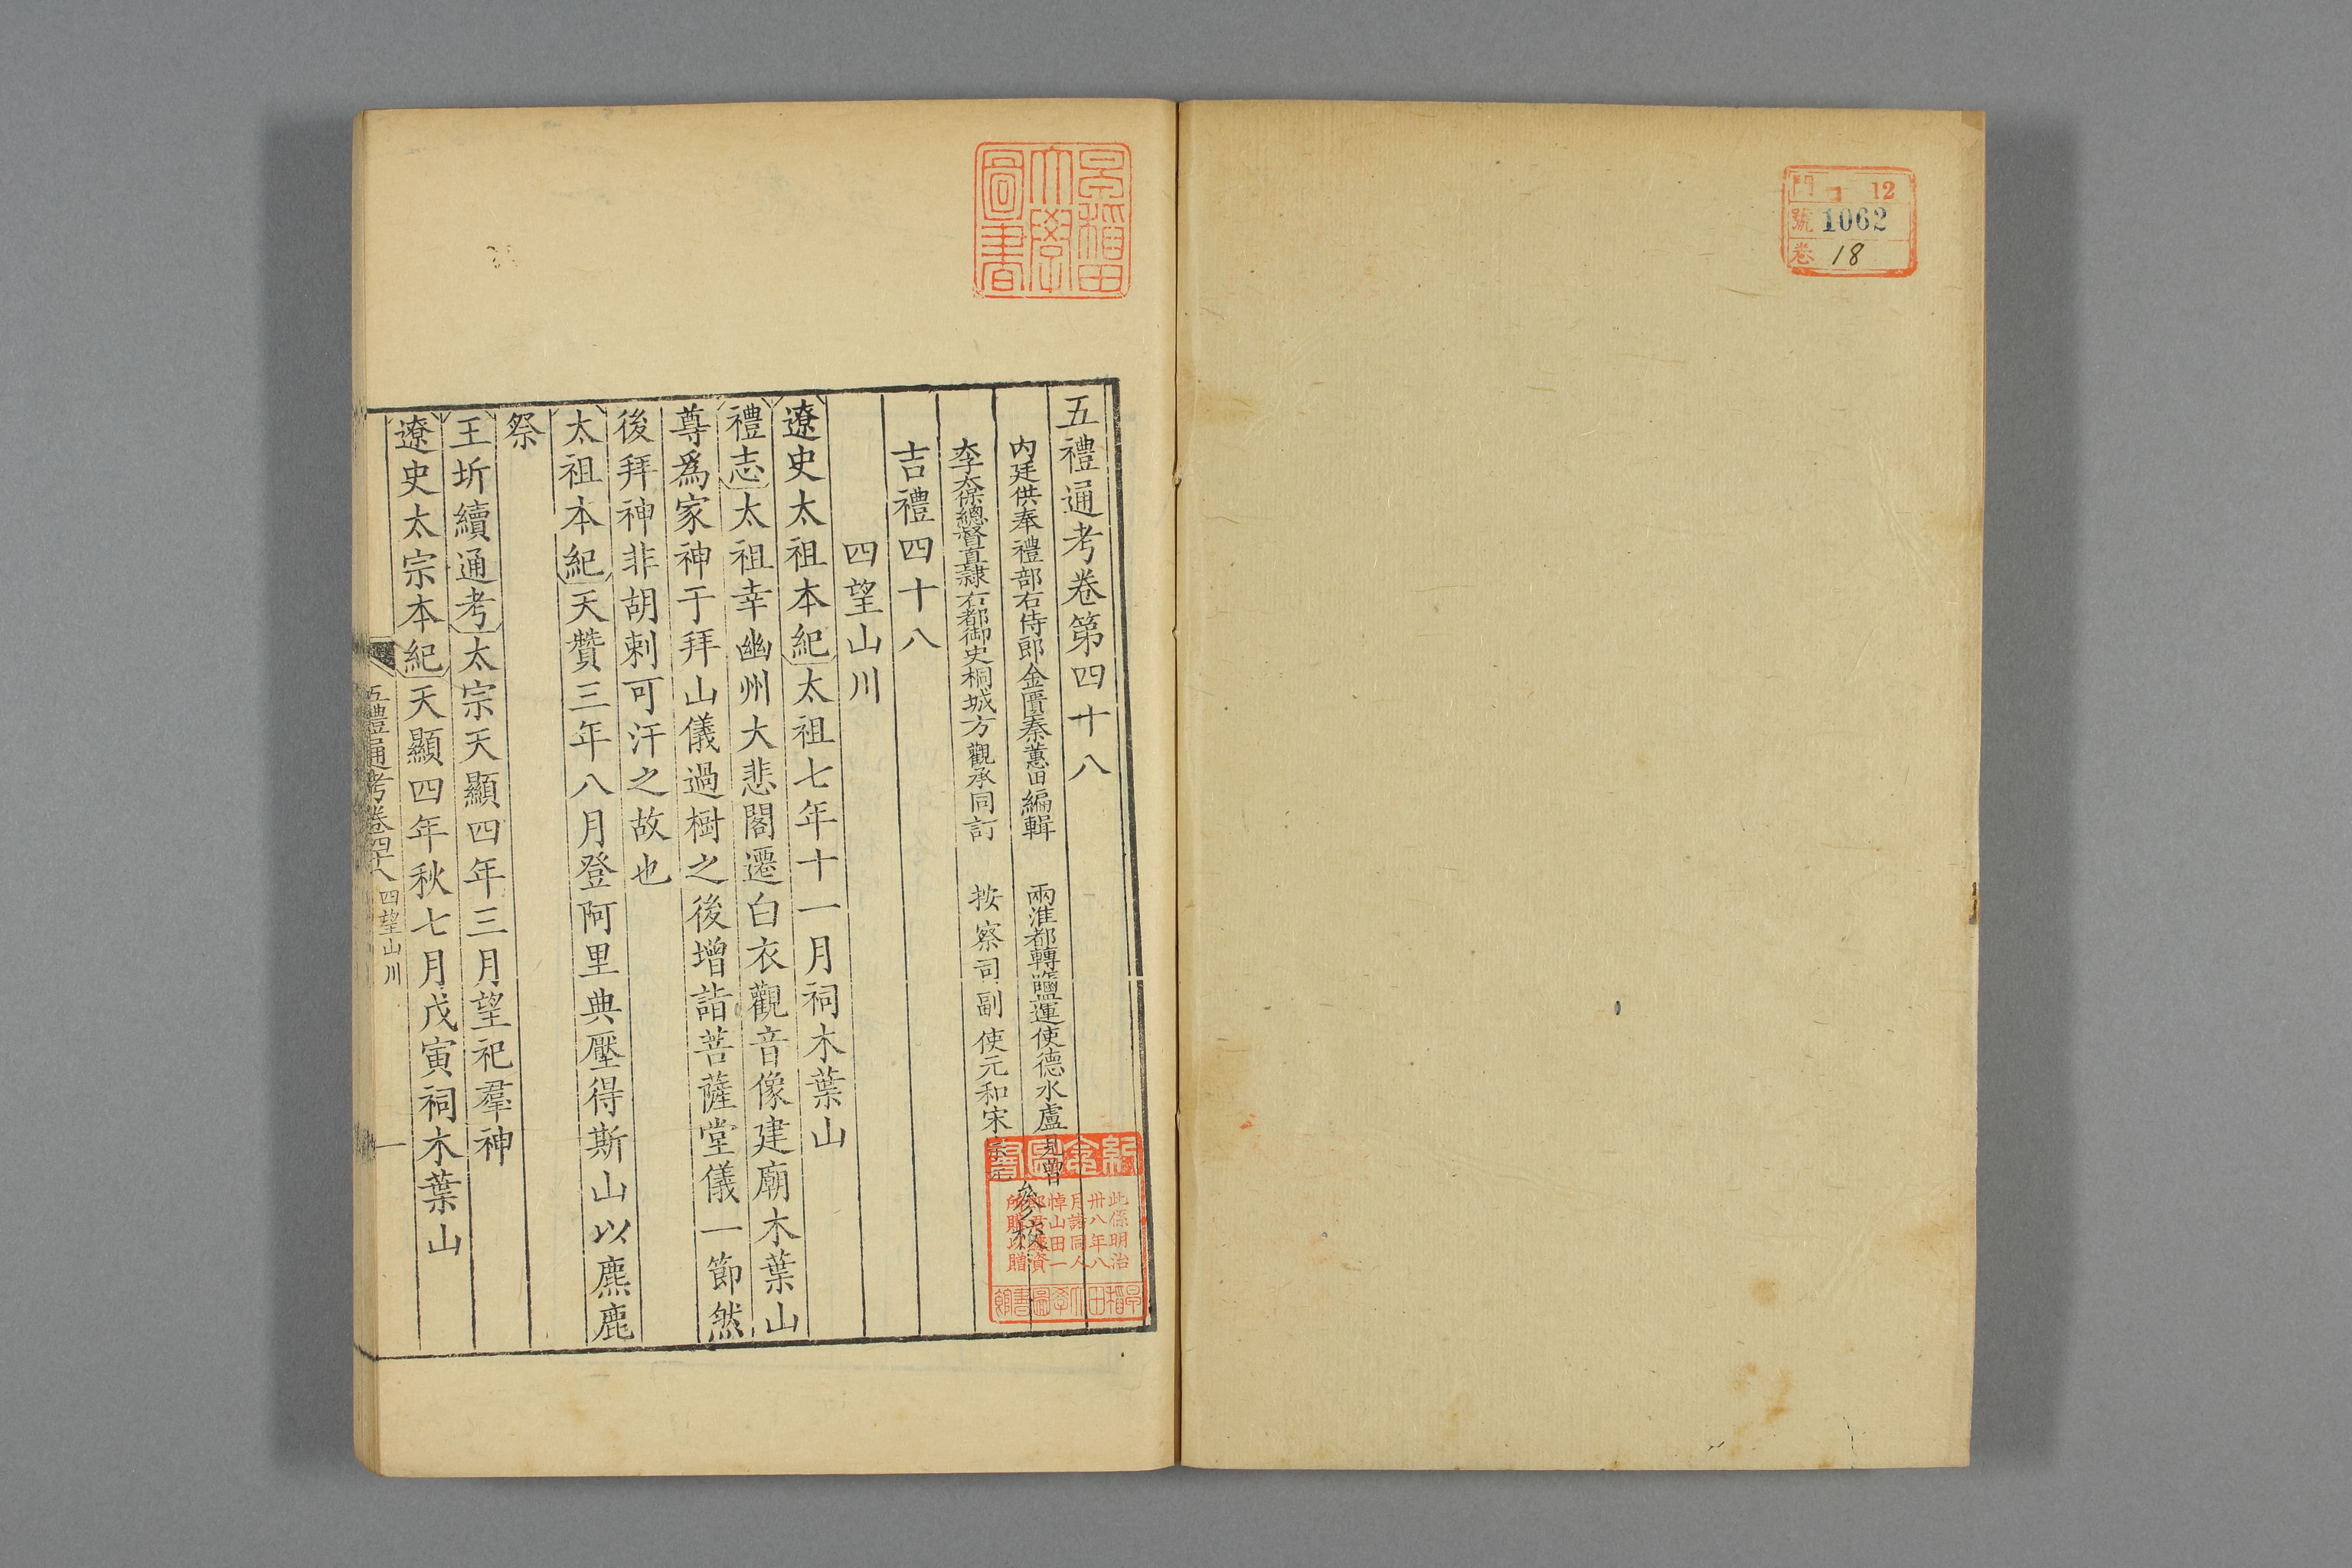 門 12
號 1062
卷 18
早稲田
大學
圖書
五禮通考卷第四十八
内廷供奉禮部右侍郎金匱秦蕙田編輯 兩淮都轉鹽運使德水盧見曾
太子太保總督直隷右都御史桐城方觀承同訂 按察司副使元和宋宗元
參校
吉禮四十八
四望山川
遼史太祖本紀太祖七年十一月祠木葉山
禮志太祖幸幽州大悲閣遷白衣觀音像建廟木葉山
尊爲家神于拜山儀過樹之後增詣菩薩堂儀一節然
後拜神非胡剌可汗之故也
太祖本紀天贊三年八月登阿里典壓得斯山以麃鹿
祭
王圻續通考太宗天顯四年三月望祀羣神
遼史太宗本紀天顯四年秋七月戊寅祠木葉山
五禮通考卷四十八 四望山川 一
此係明治
卅八年八
月諸同人
悼山田一
所購以贈
早稲田大學圖書館